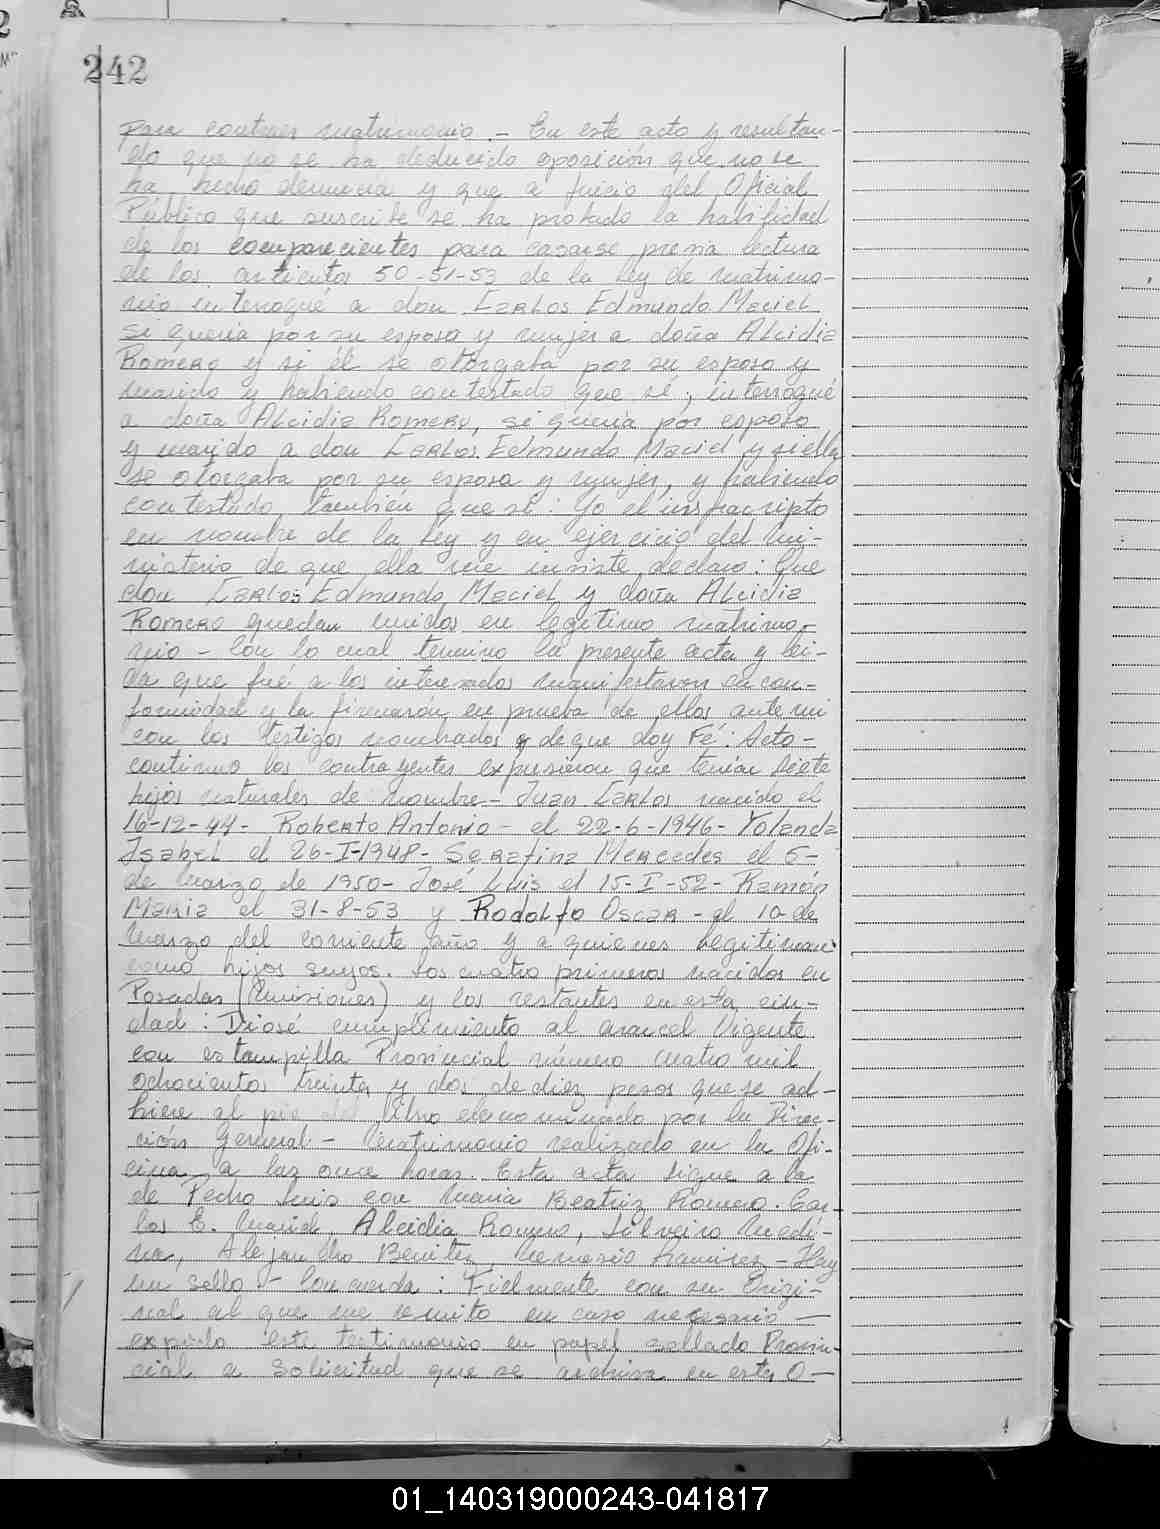 242
para contraer matrimonio. - En este acto y resultan-
do que no se ha deducido oposición que no se
ha hecho denuncia y que a juicio del Oficial
Público que suscribe se ha probado la habilidad
de los comparecientes para casarse previa lectura
de los artículos 50-51-53 de la Ley de matrimo-
nio interrogué a don Carlos Edmundo Maciel
si quería por su esposa y mujer a doña Alcidia
Romero y si él se otorgaba por su esposo y
marido y habiendo contestado que sí, interrogué
a doña Alcidia Romero, si quería por esposo
y marido a don Carlos Edmundo Maciel y si ella
se otorgaba por su esposa y mujer, y habiendo
contestado también que sí: Yo el infrascripto
en nombre de la Ley y en ejercicio del Mi-
nisterio de que ella me inviste, declaro: Que
don Carlos Edmundo Maciel y doña Alcidia
Romero quedan unidos en legítimo matrimo-
nio - Con lo cual termino la presente acta y lei-
da que fué a los interesados manifestaron su con-
formidad y la firmarón en prueba de ellos ante mi
con los testigos nombrados y de que doy Fé: Acto-
continuo los contrayentes expusieron que tenían siete
hijos naturales de nombre - Juan Carlos nacido el
16-12-44- Roberto Antonio - el 22-6-1946- Yolanda
Isabel el 26-I-1948- Serafina Mercedes el 6-
de marzo de 1950- José Luis el 15-I-52- Ramón
Maria el 31-8-53 y Rodolfo Oscar - el 10 de
Marzo del corriente año y a quienes legitiman
como hijos suyos. Los cuatro primeros nacidos en
Posadas (Misiones) y los restantes en esta ciu-
dad: Diosé cumplimiento al arancel Vigente
con estampilla Provincial número cuatro mil
ochocientos treinta y dos de diez pesos que se ad-
hiere al pie del libro denominado por la Direc-
ción General - Matrimonio realizado en la Ofi-
cina a las once horas. Esta acta sigue a la
de Pedro Luis con Maria Beatriz Romero. Car-
los E. Maciel, Alcidia Romero, Silveiro Medi-
na, Alejandro Benitez, Nemesio Ramirez - Hay
un sello - Concuerda: Fielmente con su Origi-
nal al que me remito en caso necesario -
expido este testimonio en papel sellado Provin-
cial a solicitud que se archiva en esta O-
01_140319000243-041817